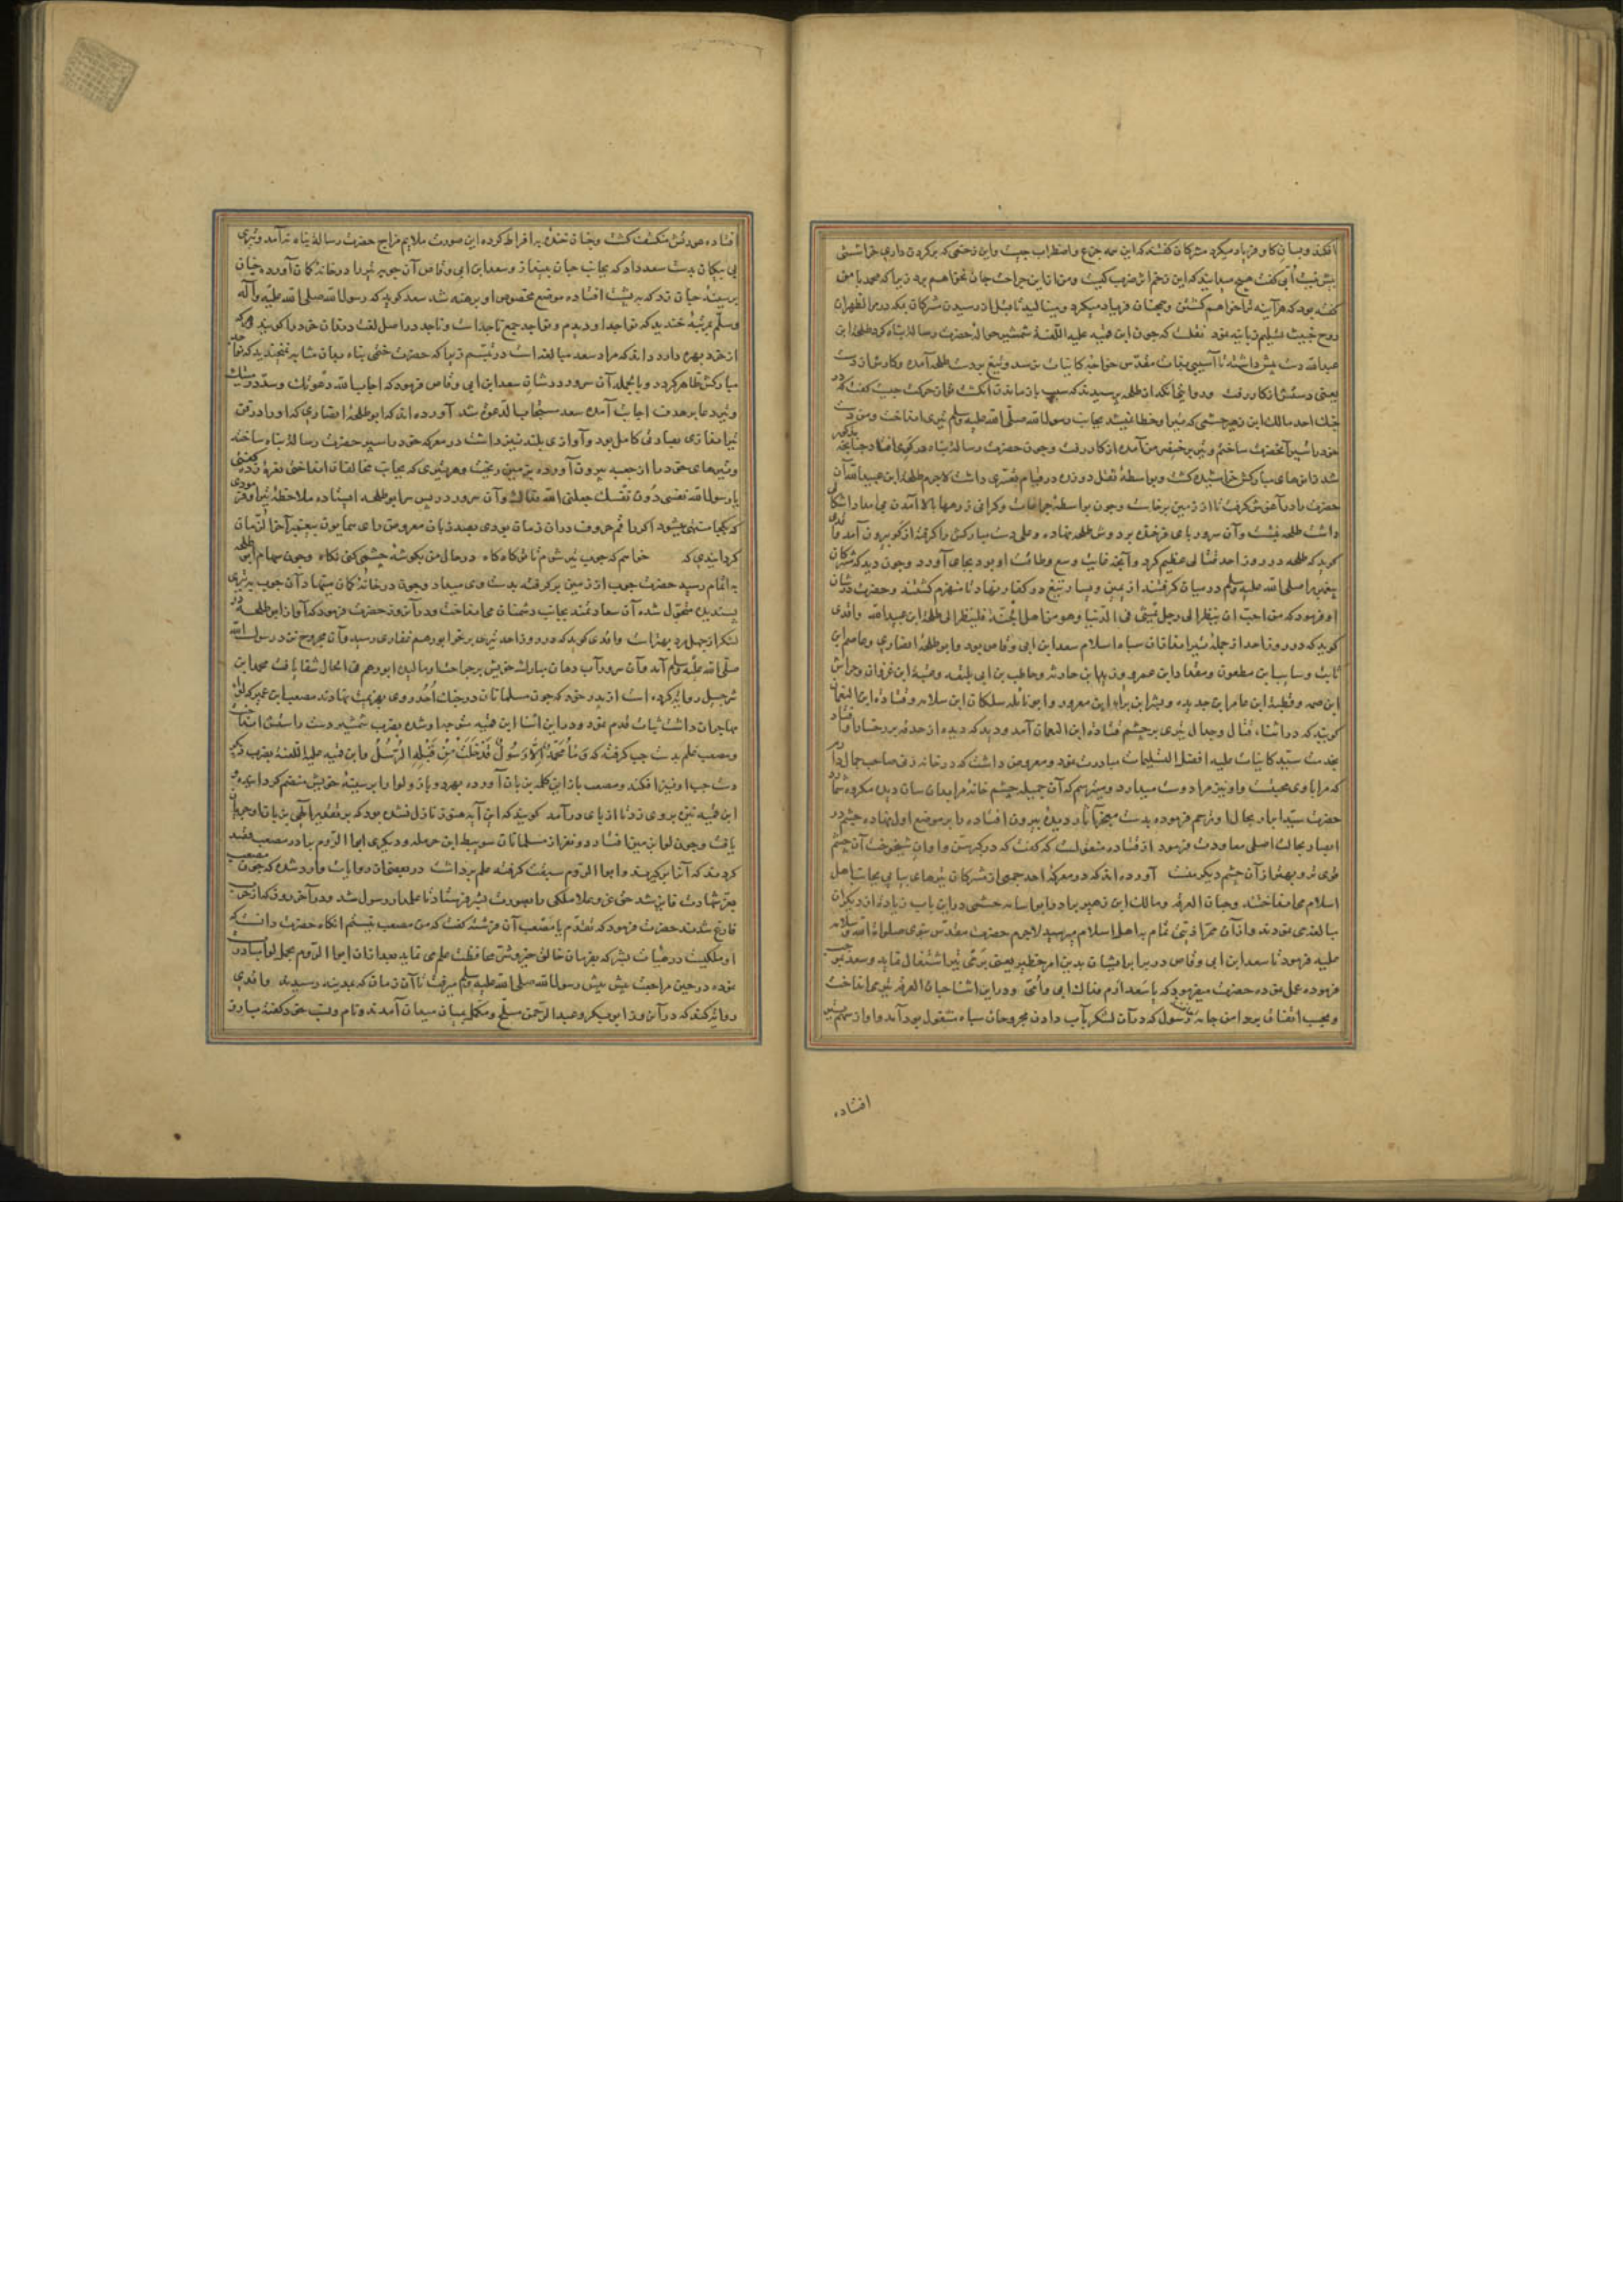 افکند و بسان گاو فریاد میکرد مشرکان گفتند که این همه جزع و اضطراب چیست و این زخمی که بر گردن داری خراشی
بیش نیست اُبی گفت هیچ میدانید که این زخم از ضرب کیست و من ازین جراحت جان نخواهم برد زیرا که محمد با من
گفته بود که هرآینه ترا خواهم کشتن و همچنان فریاد میکرد و مینالید تا قبل از رسیدن مشرکان بمکه در مر الظهران
روح خبیث تسلیم زبانیه نمود نقلست که چون ابن قمیه علیه اللعنة شمشیر حواله حضرت رسالة پناه کرد طلحة ابن
عبدالله دست پیش داشته تا آسیبی بذات مقدس خواجه کاینات نرسد و تیغ بر دست طلحه آمده و کارش از دست
یعنی دستش از کار رفت و روایتی آنکه از طلحه پرسیدند که سبب باز ماندن انگشت تو از حرکت چیست گفت که در
جنگ احد مالک ابن زهیر جشمی که تیر او خطا نمیشد بجانب رسول الله صلی الله علیه وسلم تیری انداخت و من دست
خود را سپر آنحضرت ساختم و تیر بر خنصر من آمده از کار رفت و چون حضرت رسالة پناه در گوی افتاد چنانچه مذکور
شد زانوهای مبارکش خراشیده گشت و بواسطه ثقل دو زره در قیام تعسری داشت لاجرم طلحة ابن عبیدالله آن
حضرت را در آغوش گرفت تا از زمین برخاست و چون بواسطه جراحات و گرانی زرهها بالا آمدن
داشت طلحه نشست و آن سرور پای فرخنده بر دوش طلحه نهاده و علی دست مبارکش را گرفته از گو بیرون آمد
گوید که طلحه در روز احد قتالی عظیم کرد و آنچه غایت وسع و طاقت او بود بجای آورد و چون دید که مشرکان
پیغمبر را صلی الله علیه وسلم در میان گرفتند از یمین و یسار تیغ در کفار نهاد تا منهزم گشتند و حضرت در شان
او فرمود که من احب ان ینظر الی رجل یمشی فی الدنیا و هو من اهل الجنة فلینظر الی طلحة ابن عبیدالله واقدی
گوید که در روز احد از جمله تیراندازان سپاه اسلام سعد ابن ابی وقاص بود و ابوطلحه انصاری و عاصم ابن
ثابت و سایب ابن مظعون و مقداد ابن عمرو و زید ابن حارثه و حاطب بن ابی بلتعه و عتبة ابن غزوان و خراش
ابن صمه و قطبة ابن عامر ابن حدیده و بشر ابن براء ابن معرور و ابونائله سلکان ابن سلامه و قتاده ابن النعمان
گویند که در اثناء قتال و جدال تیری بر چشم قتاده ابن النعمان آمد و دیده از حدقه بر رخسار
بخدمت سید کاینات علیه افضل التسلیمات مبادرت نمود و معروض داشت که در خانه زنی صاحب جمال دارم
که مرا با وی محبتست و او نیز مرا دوست میدارد و میترسم که آن جمیله چشم خانه مرا بدان سان دیده مکروه شمارد
حضرت سید ابرار
ابصار بحالت اصلی معاودت فرمود از قتاده منقولست که گفت که در کبر سن و اوان شیخوخت آن چشم
قوی تر و بهتر از آن چشم دیگر منست آورده اند که در معرکه احد جمعی از مشرکان تیرهای پیاپی بجانب اهل
اسلام می انداختند و حبان ابن العرقه و مالک ابن زهیر برادر ابواسامه جشمی درین باب زیاده از دیگران
مبالغه می نمودند و از آن ممر اذیتی تمام باهل اسلام میرسید لاجرم حضرت مقدس نبوی صلوات الله و سلامه
علیه فرمود تا سعد ابن ابی وقاص در برابر ایشان بدین امر خطیر یعنی برمی تیر اشتغال نماید و سعد بموجب
فرموده عمل نموده حضرت میفرمود که یا سعد ارم فداک ابی و امی و در این اثنا حبان العرقه تیری انداخت
و بحسب اتفاق بر دامن جامه رسول که در آن لشکر بآب دادن مجروحان سپاه مشغول بود آمد و او از سهم تیر
افتاده
افتاده عورتش منکشف گشت و حبان خنده بر افراط کرده این صورت ملایم مزاج حضرت رسالة پناه نیامد و تیری
بی پیکان بدست سعد داد که بجانب حبان بینداز و سعد ابن ابی وقاص آن چوبه تیر را در خانه کمان آورده چنان
بر سینه حبان زد که بر پشت افتاده موضع مخصوص او برهنه شد سعد گوید که رسول الله صلی الله علیه و آله
وسلم بمرتبه خندید که نواجذ او دیدم و نواجذ جمع ناجذ است و ناجذ در اصل لغت دندان خرد را گویند
از خرد بهره دارد داند که مراد سعد مبالغه است در تبسم زیرا که حضرت ختمی پناه بدان مثابه نخندید که نواجذ
مبارکش ظاهر گردد و بالجمله آن سرور در شان سعد ابن ابی وقاص فرمود که اجاب الله دعوتک و سدد رمیتک
و تیر دعا بر هدف اجابت آمده سعد مستجاب الدعوة شد آورده اند که ابوطلحه انصاری که او را در فن
تیراندازی مهارتی کامل بود و آوازی بلند نیز داشت در معرکه خود را سپر حضرت رسالة پناه ساخته
و تیرهای خود را از جعبه بیرون آورده بر زمین ریخت و هر تیری که بجانب مخالفان انداختی نعره زده گفتی
یا رسول الله نفسی دون نفسک جعلنی الله فداک و آن سرور در پس سر ابوطلحه ایستاده ملاحظه تیر او فرمودی
که بکجا منتهی میشود
گردانیدی که خواهم که چوب تیر شوم تا تو گاه گاه در حال من بگوشه چشمی کنی نگاه و چون سهام ابوطلحه
باتمام رسید حضرت چوب از زمین برگرفته بدست وی میداد و چون در خانه کمان مینهاد آن چوب به تیری
پسندیده متحول شده آن سعادتمند بجانب دشمنان می انداخت و در آن روز حضرت فرمود که آواز ابوطلحه در
لشکر از چهل مرد بهتر است واقدی گوید که در روز احد تیری بر نحر ابورهم غفاری رسید و آن مجروح نزد رسول الله
صلی الله علیه وسلم آمد و آن سرور آب دهان مبارک خویش بر جراحت او مالیده ابورهم فی الحال شفا یافت محمد ابن
شرحبیل روایة کرده است از پدر خود که چون مسلمانان در جنگ اُحد روی بهزیمت نهادند مصعب ابن عمیر که لوای
مهاجران داشت ثبات قدم نمود و در این اثنا ابن قمیه متوجه او شده بضرب شمشیر دست راستش انداخت
و مصعب علم بدست چپ گرفته که وَمَا مُحَمَّدٌ اِلَّا رَسُولٌ قَدْ خَلَتْ مِنْ قَبْلِهِ الرُّسُلُ و ابن قمیه علیه اللعنه بضرب دیگر
دست چپ او نیز افکند و مصعب باز این کلمه بزبان آورده بهر دو بازو لوا را بر سینه خویش منضم گردانیده
ابن قمیه تیری بر وی زد تا از پای درآمد گویند که این آیه هنوز نازل نشده بود که بر تقدیر الهی بر زبان او جریان
یافت و چون لوا بزمین افتاد دو نفر از مسلمانان سویبط ابن حرمله و دیگری ابوالروم برادر مصعب قصد
کردند که آنرا برگیرند و ابوالروم سبقت گرفته علم برداشت در بعضی از روایات وارد شده که چون مصعب
بعز شهادت فایز شد حق عز و علا ملکی را بصورت بشر فرستاد تا علمدار رسول شد و در آخر روز که از حرب
فارغ شدند حضرت فرمود که تقدم یا مصعب آن فرشته گفت که من مصعب نیستم آنگاه حضرت دانست که
او ملکیست
بود و در حین مراجعت پیش پیش رسول الله صلی الله علیه وسلم میرفت تا آن زمان که بمدینه رسیدند واقدی
روایة کند که در آن روز ابن بیکر و عبدالرحمن مسلح و مکمل بمیان میدان آمدند و نام و نسب خود گفته مبارز